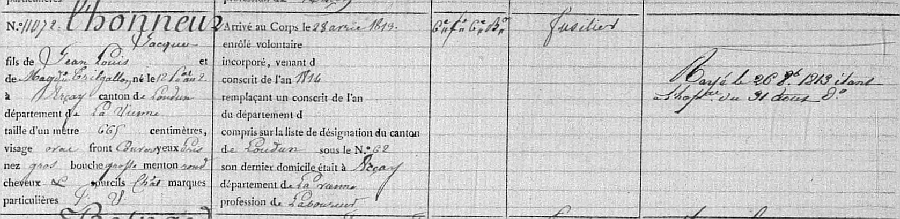 N.º 11072. Lhonneux
Jacques
fils de Jean Louis et
de Magd.ne né le 12
à Arçay canton de Loudun
département de La Vienne
taille d'un mètre 665 centimètres,
visage oval front couv. yeux gris
nez gros bouche grosse menton rond
cheveux & sourcils Chât marques
particulières
Arrivé au Corps le 28 avril 1813.
enrôlé volontaire
incorporé, venant d
conscrit de l'an 1814
remplaçant un conscrit de l'an
du département d
compris sur la liste de désignation du canton
de Loudun sous le N.º 62
son dernier domicile était à Arçay
département de La Vienne
profession de Laboureur
6e Cie 6e Bon
Fusilier
Rayé le 26 8bre 1813 étant
à l'hop du 31 aout do